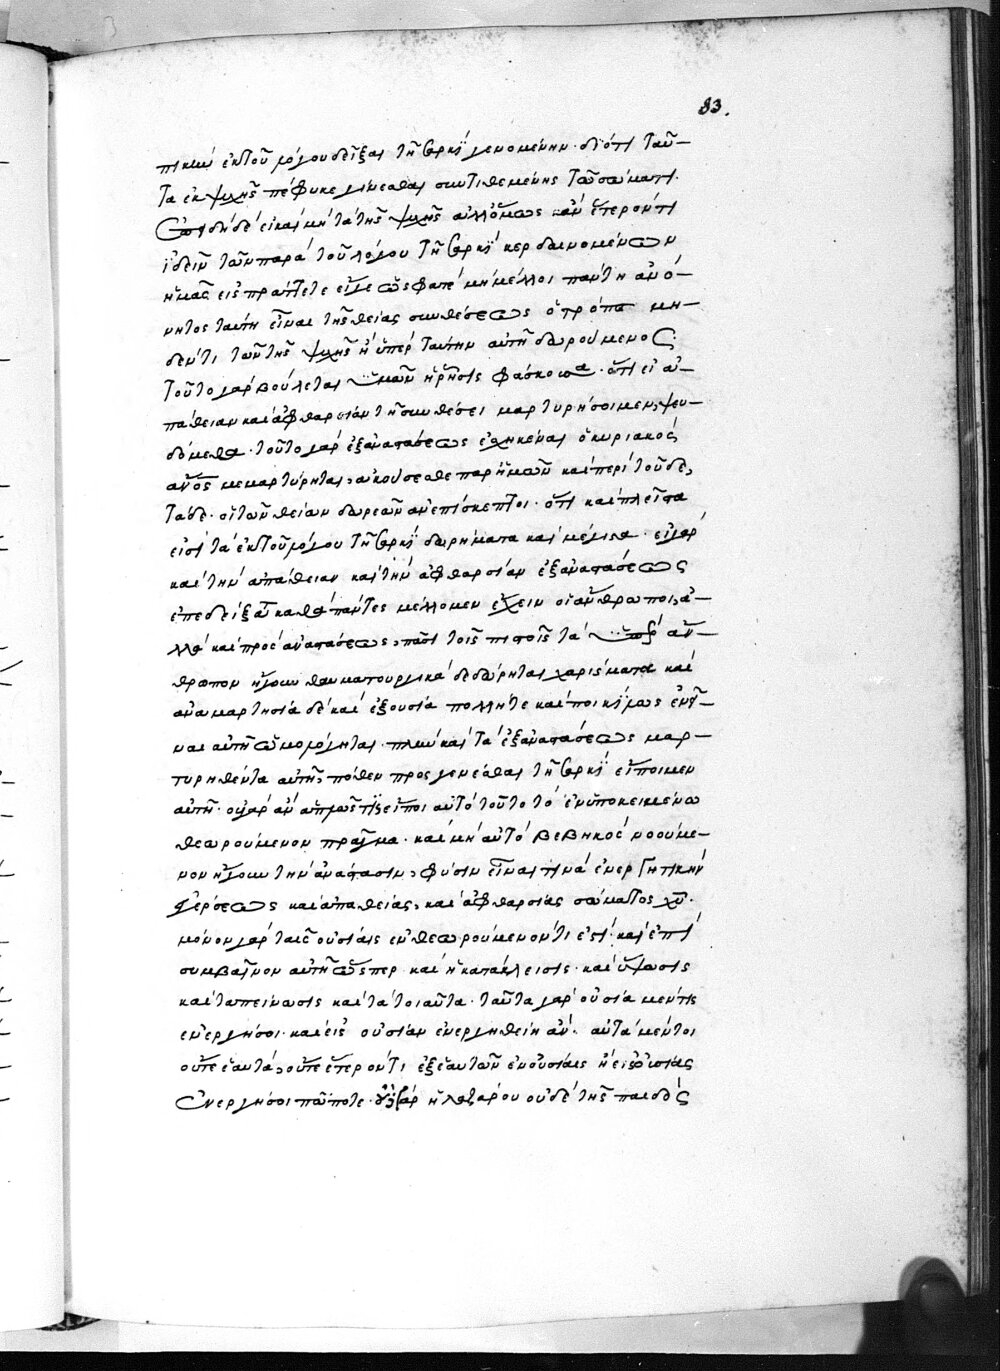 83.
πικὴν ἐκ τοῦ λόγου δεῖξαι τῇ σαρκὶ γενομένην· διότι ταῦ-
τα ἐκ ψυχῆς πέφυκε γίνεσθαι συντιθεμένης τῷ σώματι.
δὲ εἰ καὶ μὴ τὰ τῆς ψυχῆς ἀλλ' ὅμως κἂν ἕτερόν τι
ἰδεῖν τῶν παρὰ τοῦ λόγου τῇ σαρκὶ κερδαινομένων
ἡμᾶς εἰσπράττετε εἴγε ὥς φατε μὴ μέλλοι πάντη ἀνό-
νητος ταύτη εἶναι τῆς θείας συνθέσεως ὁ τρόπος μη-
δέν τι τῶν τῆς ψυχῆς ἢ ὑπὲρ ταύτην αὐτῇ δωρούμενος·
τοῦτο γὰρ βούλεται ὑμῶν ἡ ῥῆσις φάσκουσα· ὅτι εἰ ἀ-
πάθειαν καὶ ἀφθαρσίαν τῇ συνθέσει μαρτυρήσοιμεν, ψευ-
δόμεθα· τοῦτο γὰρ ἐξ ἀναστάσεως ἐσχηκέναι ὁ κυριακὸς
ἄνος μεμαρτύρηται, ἀκούσεσθε παρ' ἡμῶν καὶ περὶ τοῦδε
τάδε· οἱ τῶν θείων δωρεῶν ἀνεπίσκεπτοι· ὅτι καὶ πλεῖστα
εἰσὶ τὰ ἐκ τοῦ λόγου τῇ σαρκὶ δωρήματα καὶ μέγιστα· εἰ γὰρ
καὶ τὴν ἀπάθειαν καὶ τὴν ἀφθαρσίαν ἐξ ἀναστάσεως
ἐπεδείξατο καθὰ πάντες μέλλομεν ἔχειν οἱ ἄνθρωποι, ἀ-
λλὰ καὶ πρὸ ἀναστάσεως, πᾶσι τοῖς πιστοῖς τὰ ὑπὲρ ἄν-
θρωπον ἤγουν θαυματουργικὰ δεδώρηται χαρίσματα καὶ
ἀναμαρτησία δὲ καὶ ἐξουσία πολλή τε καὶ ποικίλως ἐνεῖ-
ναι αὐτῇ ὡμολόγηται· πλὴν καὶ τὰ ἐξ ἀναστάσεως μαρ-
τυρηθέντα αὐτῇ, πόθεν προσγενέσθαι τῇ σαρκὶ εἴποιμεν
αὐτῇ· οὐ γὰρ ἂν ἁπλῶς τις εἴποι αὐτὸ τοῦτο τὸ ἐν ὑποκειμένῳ
θεωρούμενον πρᾶγμα· καὶ μὴ αὐτὸ βεβηκὸς νοούμε-
νον ἤγουν τὴν ἀνάστασιν, φύσιν εἶναι τινὰ ἐνεργητικὴν
ἐγέρσεως καὶ ἀπαθείας, καὶ ἀφθαρσίας σώματος χυ·
μόνον γὰρ ταῖς οὐσίαις ἐνθεωρούμενόν τι ἐστὶ καὶ ἐπι
συμβαῖνον αὐτῇ ὥσπερ καὶ ἡ κατάκλεισις· καὶ ὕψωσις
καὶ ταπείνωσις καὶ τὰ τοιαῦτα· ταῦτα γὰρ οὐσία μέν τις
ἐνεργήσοι· καὶ εἰς οὐσίαν ἐνεργηθείη ἄν· αὐτὰ μέντοι
οὔτε ἑαυτά, οὔτε ἕτερόν τι ἐξ ἑαυτῶν ἐν οὐσίαις ἢ εἰς οὐσίας
ἐνεργήσοι πώποτε· οὐ γὰρ ἡ λαζάρου οὐδὲ τῆς παιδὸς